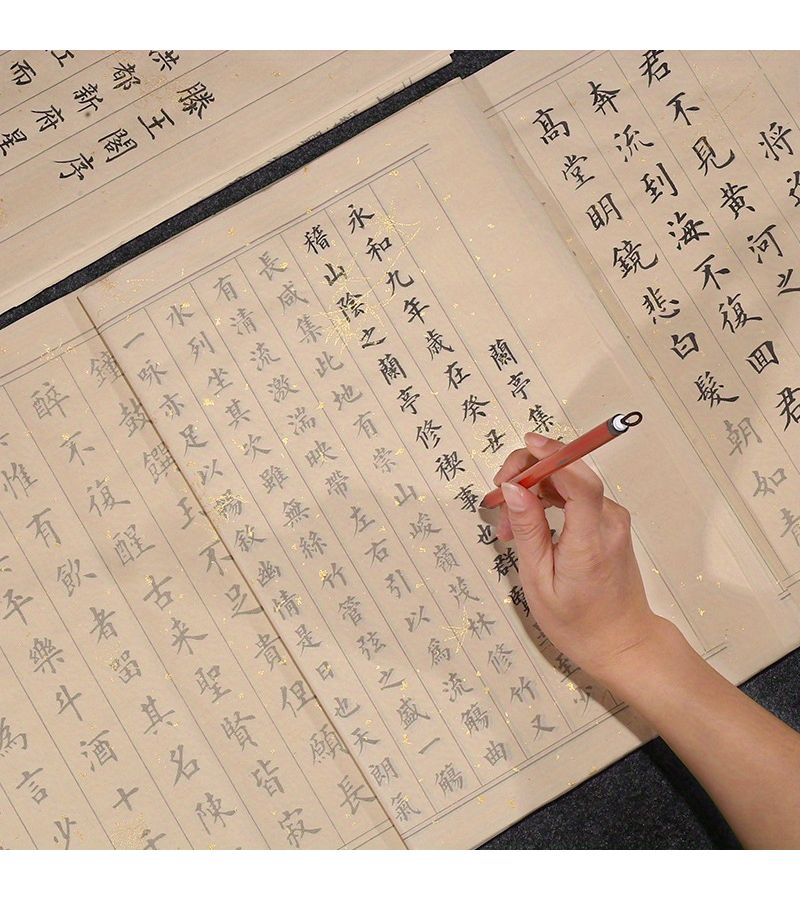 將
君不見黃河之
奔流到海不復回君
高堂明鏡悲白髮朝如青
蘭亭集
永和九年歲在癸丑
稽山陰之蘭亭修禊事也群賢畢至少
長咸集此地有崇山峻嶺茂林修竹又
有清流激湍映帶左右引以為流觴曲
水列坐其次雖無絲竹管弦之盛一觴
一咏亦足以暢敘幽情是日也天朗氣
鐘鼓饌玉不足貴但願長
醉不復醒古來聖賢皆寂
惟有飲者留其名陳
平樂斗酒十千
為言少
滕王閣序
洪都新府星
江而